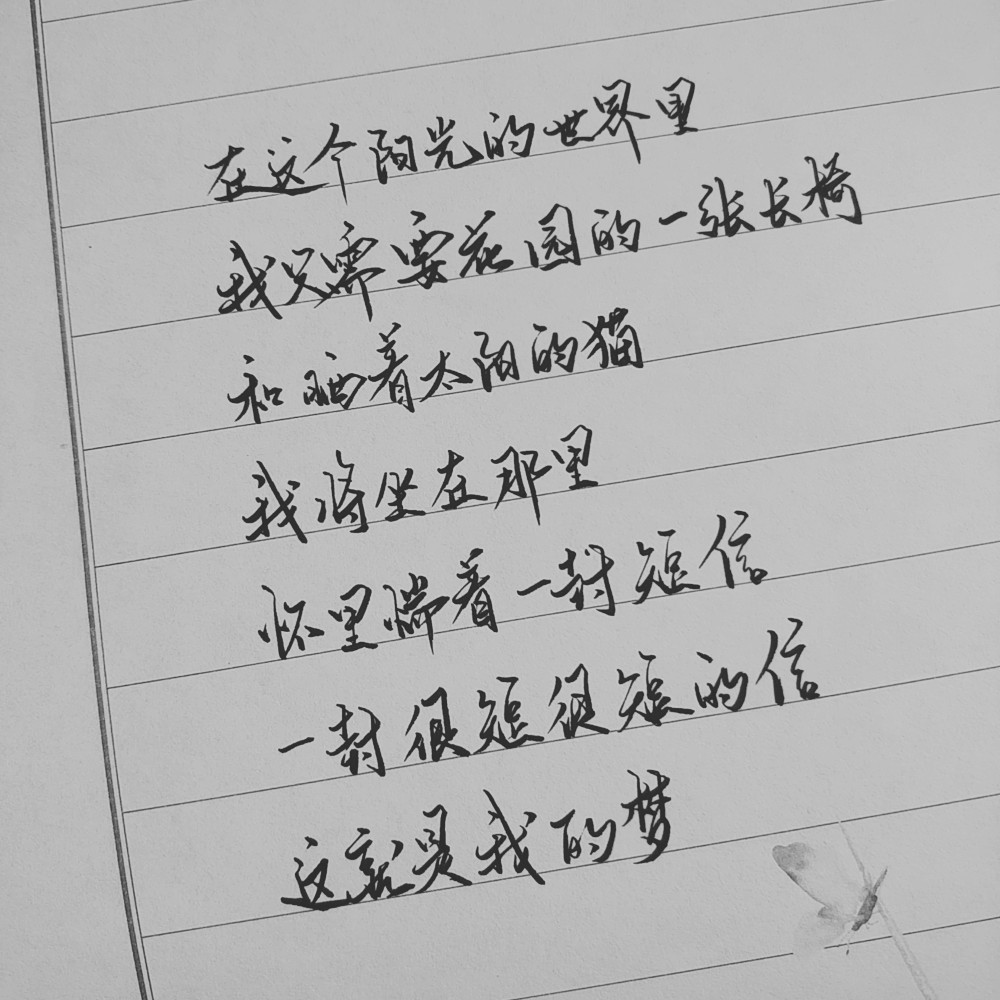 在这个阳光的世界里
我只需要花园的一张长椅
和晒着太阳的猫
我将坐在那里
怀里惴着一封短信
一封很短很短的信
这就是我的梦